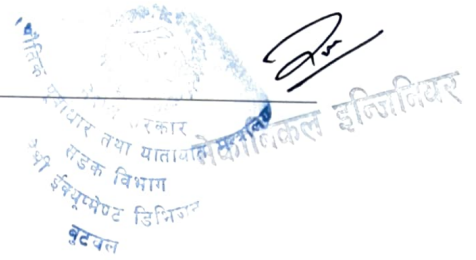 रकार
भौतिक पूर्वाधार तथा यातायात मन्त्रालय
सडक विभाग
हेभी ईक्यूपमेण्ट डिभिजन
बुटवल
मेकानिकल इन्जिनियर